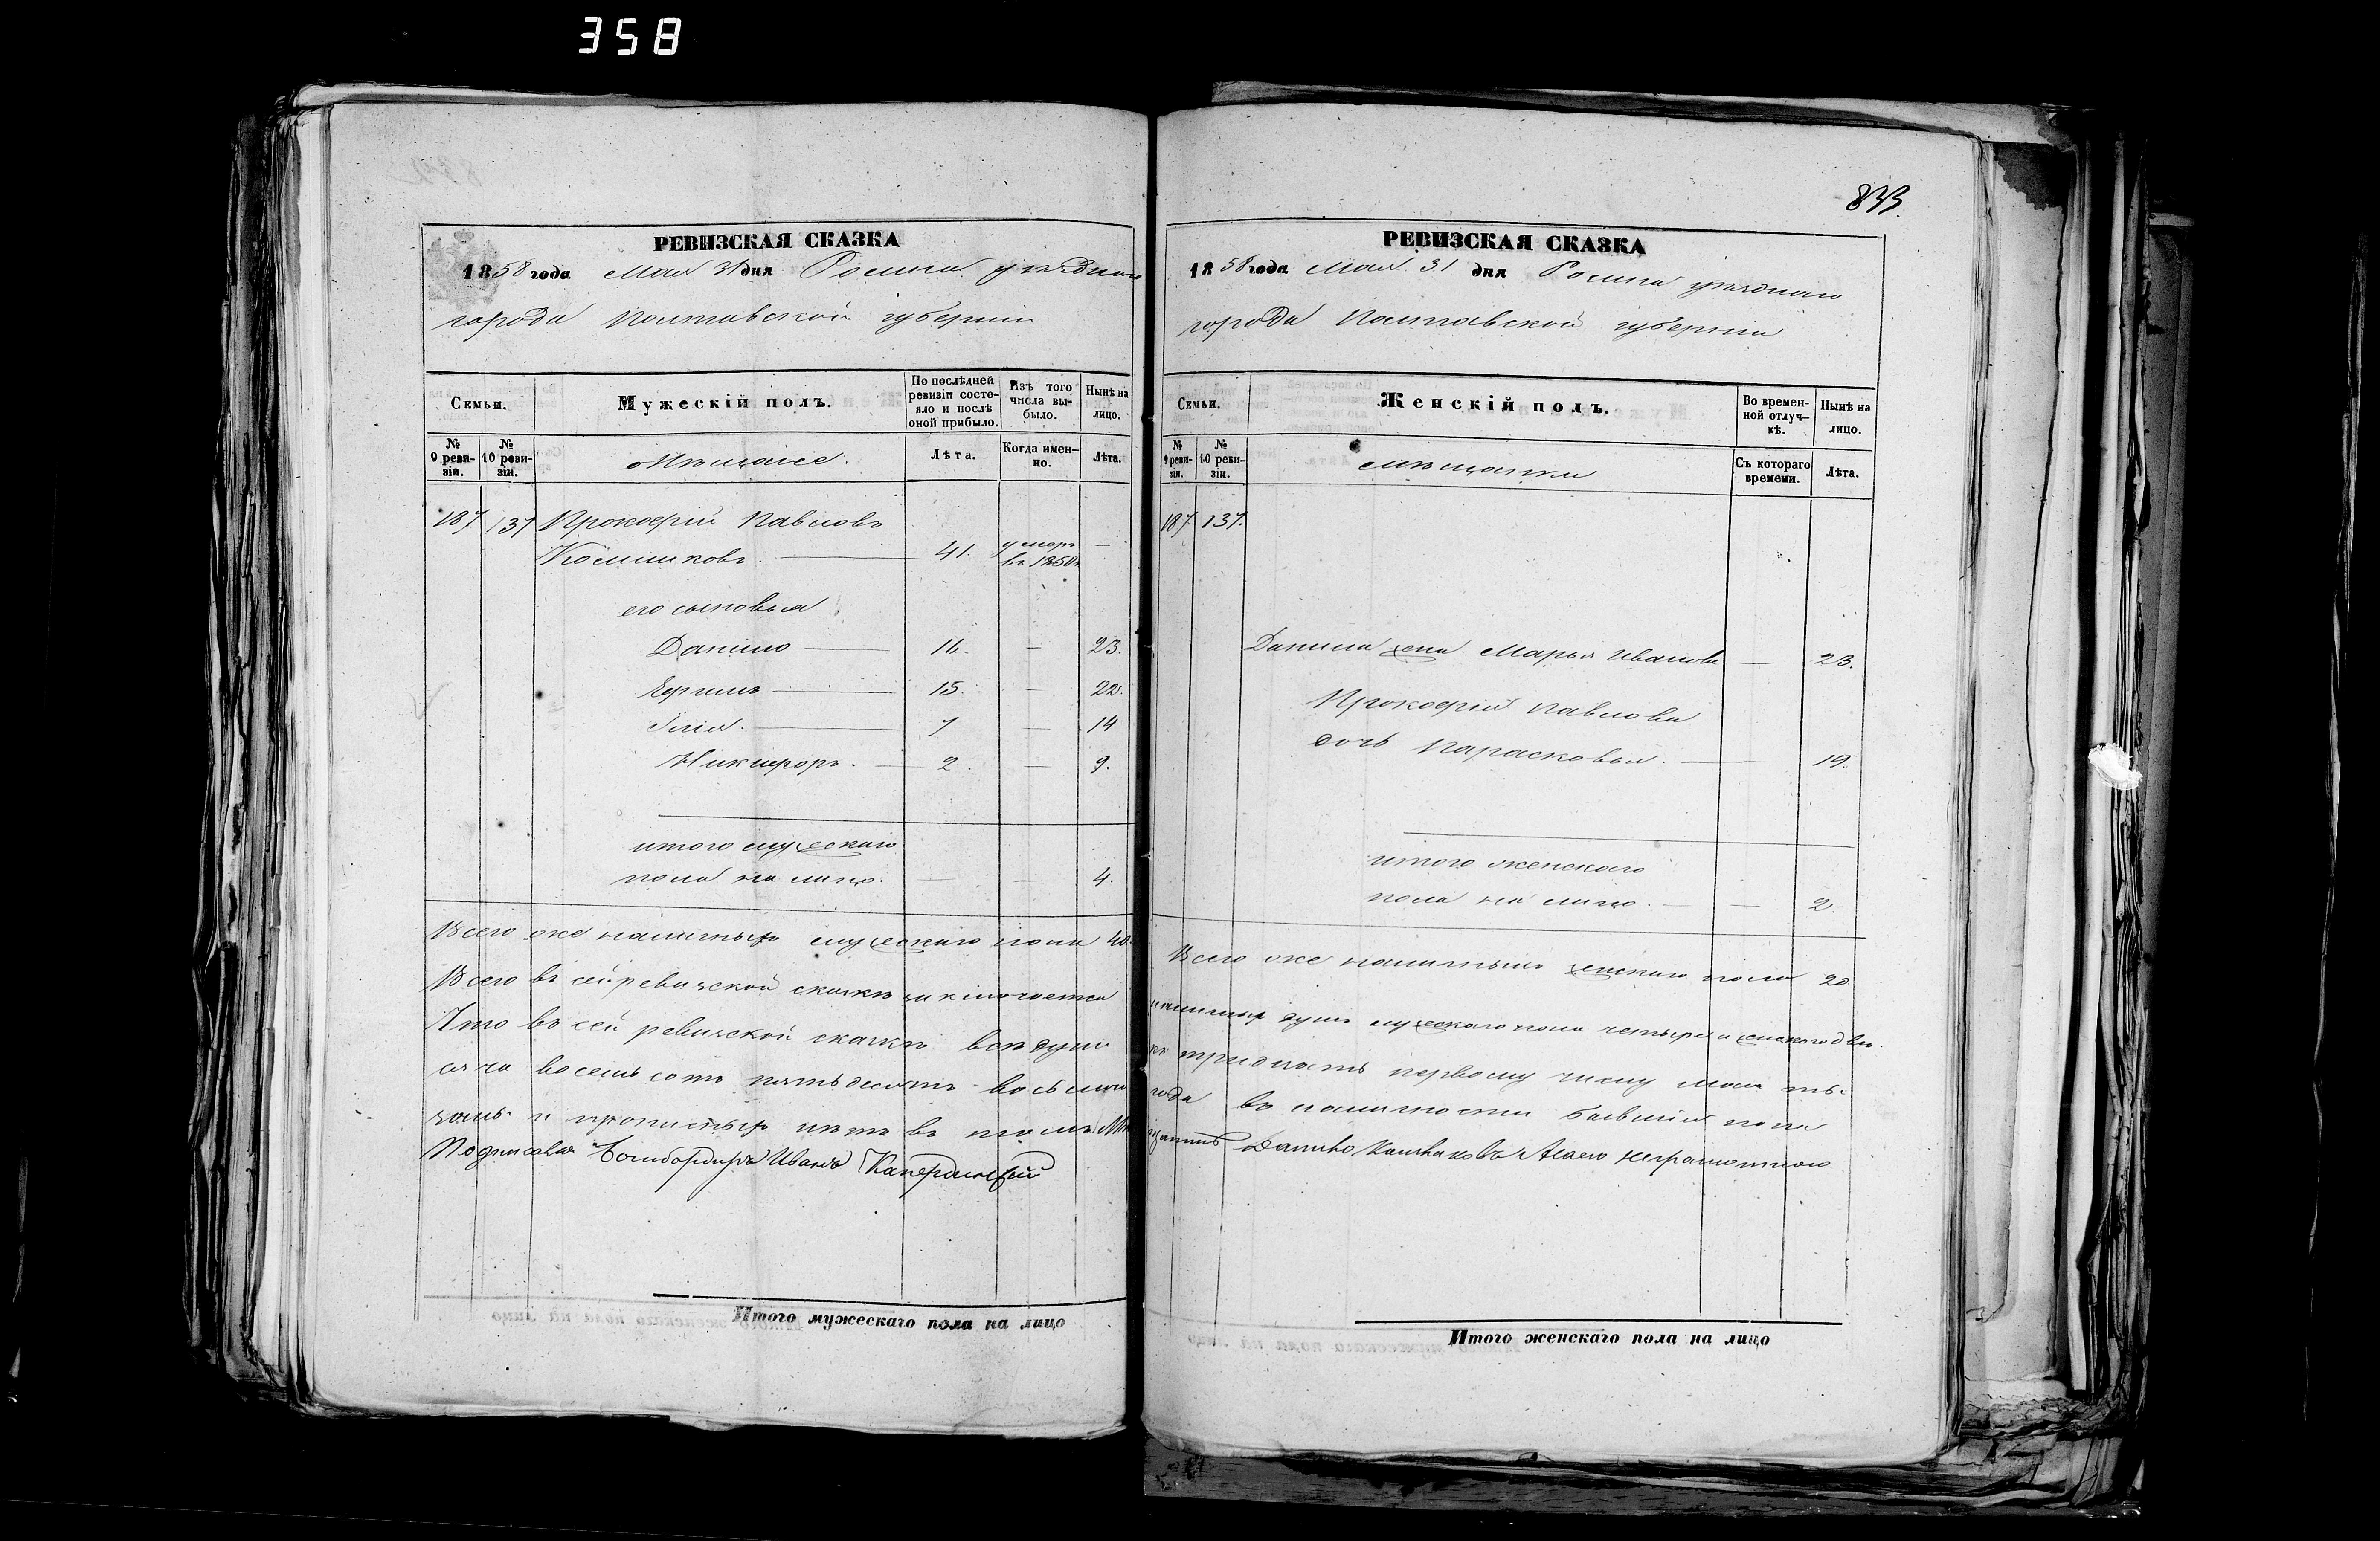 358
РЕВИЗСКАЯ СКАЗКА
1858 года Мая 31 дня Ромна уѣзднаго
города Полтавской губерніи
Семьи.
Мужескій полъ.
По послѣдней ревизіи состояло и послѣ оной прибыло.
Изъ того числа выбыло.
Нынѣ на лицо.
№ 9 ревизіи.
№ 10 ревизіи.
Мѣщане.
Лѣта.
Когда именно.
Лѣта.
187 137 Прокофій Павловъ
41. умеръ въ 1850 —
его сыновья
Данило — 16. — 23.
Ефимъ — 15. — 22.
Илія. — 7 — 14
Никифоръ. — 2. — 9.
итого мужескаго
пола на лицо. — — 4.
Всего же наличныхъ мужескаго пола 40.
Всего въ сей ревизской сказкѣ заключается
Что въ сей ревизской сказкѣ всѣ души
сяча восемь сотъ пятьдесятъ восьмого
и прописныхъ нѣтъ въ томъ
Иванъ
Итого мужескаго пола на лицо
833.
РЕВИЗСКАЯ СКАЗКА
1858 года Мая 31 дня Ромна уѣзднаго
города Полтавской губерніи
Семьи.
Женскій полъ.
Во временной отлучкѣ.
Нынѣ на лицо.
№ 9 ревизіи.
№ 10 ревизіи.
мѣщанки
Съ котораго времени.
Лѣта.
187 137.
Данила жена Марья Иванова — 23.
Прокофія Павлова
дочь Парасковья. — 19.
итого женскаго
пола на лицо. — — 2.
Всего же наличныхъ женскаго пола 20
наличныхъ душъ мужескаго пола четыре и женскаго двѣ.
къ тридцать первому числу мая ты-
года въ наличности бывшія
Данило неграмотнаго
Итого женскаго пола на лицо